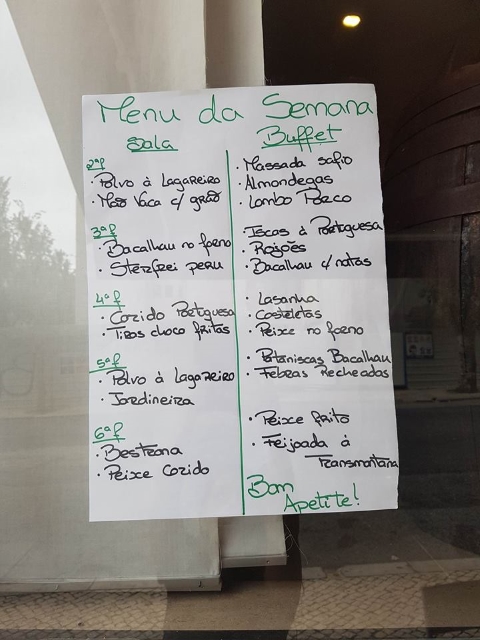 Menu da Semana
Sala
2ªf
· Polvo à Lagareiro
· Mão Vaca c/ grão
3ªf
· Bacalhau no forno
· Sterfrei peru
4ªf
· Cozido Portguesa
· Tiras choco fritas
5ªf
· Polvo à Lagareiro
· Jardineira
6ªf
· Bestrana
· Peixe Cozido
Buffet
· Massada safio
· Almondegas
· Lombo Porco
· Iscas à Portguesa
· Rojões
· Bacalhau c/ natas
· Lasanha
· Costeletas
· Peixe no forno
· Pataniscas Bacalhau
· Febras Recheadas
· Peixe frito
· Feijoada à
Transmontana
Bom
Apetite!